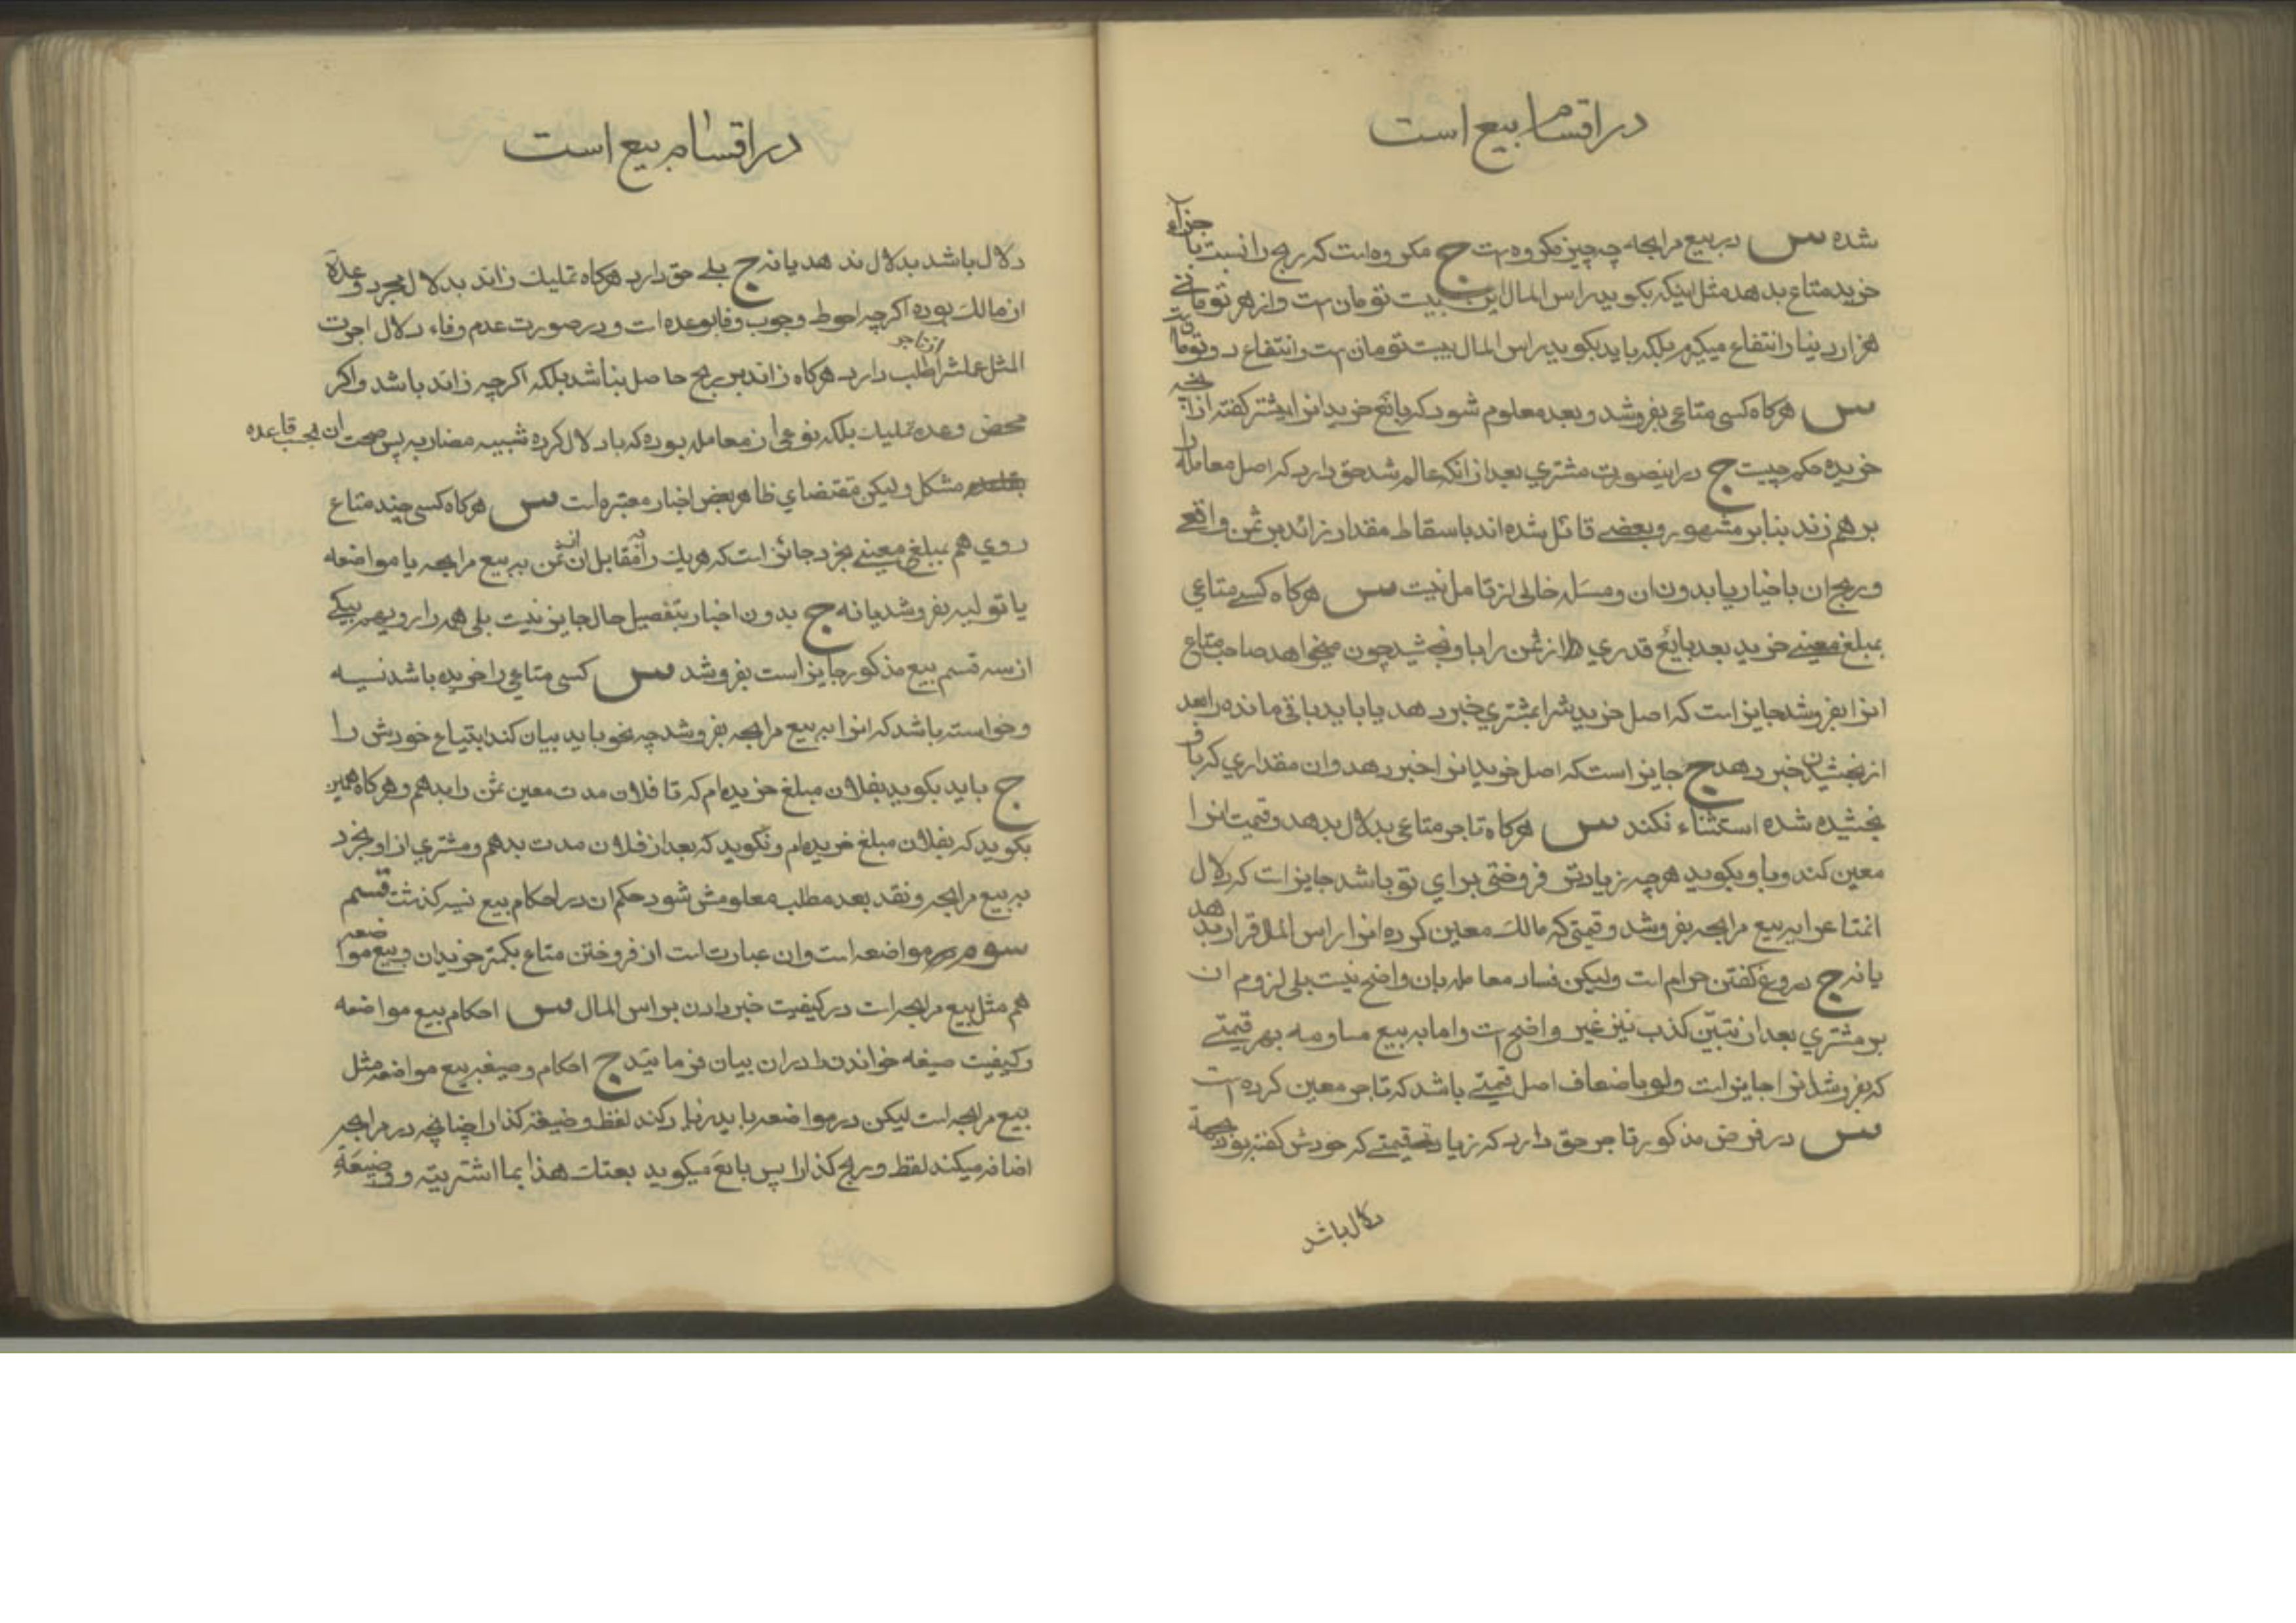 در اقسام بیع است
شده س در بیع مرابحه چه چیز مکروه است ج مکروه است که ربح را نسبت با جزاء
خرید متاع بدهد مثل اینکه بکوید راس المال این بیست تومان است و از هر تومانی
هزار دینار انتفاع میکیرم بلکه باید بکوید راس المال بیست تومان است و انتفاع دو تومان
س هرکاه کسی متاعی بفروشد و بعد معلوم شود که بائع خرید انرا بیشتر کفته از انچه
خریده حکم چیست ج در اینصورت مشتری بعد از انکه عالم شد حق دارد که اصل معامله را
بر هم زند بنابر مشهور و بعضی قائل شده اند باسقاط مقدار زائد بر ثمن واقعی
و ربح ان با خیار یا بدون ان و مسئله خالی از تامل نیست س هرکاه کسی متاعی
بمبلغ معینی خرید بعد بائع قدری از ثمن را باو بخشید چون میخواهد صاحب متاع
انرا بفروشد جایز است که اصل خریدش را بمشتری خبر دهد یا باید باقی مانده را بعد
از بخشیدن خبر دهد ج جایز است که اصل خرید انرا خبر دهد و ان مقداری که باو
بخشیده شده استثناء نکند س هرکاه تاجر متاعی بدلال بدهد و قیمت انرا
معین کند و باو بکوید هرچه زیادتر فروختی برای تو باشد جایز است که دلال
انمتاع را ببیع مرابحه بفروشد و قیمتی که مالک معین کرده انرا راس المال قرار بدهد
یا نه ج دروغ کفتن حرام است ولیکن فساد معامله بان واضح نیست بلی لزوم ان
بر مشتری بعد از تبین کذب نیز غیر واضح است و اما ببیع مساومه بهر قیمتی
که بفروشد انرا جایز است ولو باضعاف اصل قیمتی باشد که تاجر معین کرده است
س در فرض مذکور تاجر حق دارد که زیاده قیمتی که خودش کفته بود
دلال باشد
در اقسام بیع است
دلال باشد بدلال ندهد یا نه ج بلی حق دارد هرکاه تملیک زائد بدلال مجرد وعدۀ
از مالک بوده اکرچه احوط وجوب وفا بوعده است و در صورت عدم وفاء دلال اجرت
المثل عملش را از تاجر طلب دارد هرکاه زائد بر ربح حاصل نباشد بلکه اکرچه زائد باشد و اکر
محض وعده تملیک بلکه نوعی از معامله بوده که با دلال کرده شبیه مضاربه پس صحت ان بحسب قاعده
مشکل ولیکن مقتضای ظاهر بعض اخبار معتبره است س هرکاه کسی چند متاع
روی هم بمبلغ معینی بخرد جائز است که هر یک را در مقابل ان ثمن ببیع مرابحه یا مواضعه
یا تولیه بفروشد یا نه ج بدون اخبار بتفصیل حال جایز نیست بلی همه را رویهم بیکی
از سه قسم بیع مذکور جایز است بفروشد س کسی متاعی را خریده باشد نسیه
و خواسته باشد که انرا ببیع مرابحه بفروشد چه نحو باید بیان کند ابتیاع خودش را
ج باید بکوید بفلان مبلغ خریده ام که تا فلان مدت معین ثمن را بدهم و هرکاه همین
بکوید که بفلان مبلغ خریده ام و نکوید که بعد از فلان مدت بدهم و مشتری از او بخرد
ببیع مرابحه و نقد بعد مطلب معلومش شود حکم ان در احکام بیع نسیه کذشت قسم
سوم مواضعه است و ان عبارت است از فروختن متاع بکمتر خرید ان و بیع مواضعه
هم مثل بیع مرابحه است در کیفیت خبر دادن براس المال س احکام بیع مواضعه
و کیفیت صیغه خواندن در ان بیان فرمائید ج احکام و صیغه بیع مواضعه مثل
بیع مرابحه است لیکن در مواضعه باید زیاد کند لفظ وضیعة کذا را چنانچه در مرابحه
اضافه میکند لفظ و ربح کذا را پس بائع میکوید بعتک هذا بما اشتریته و وضیعة